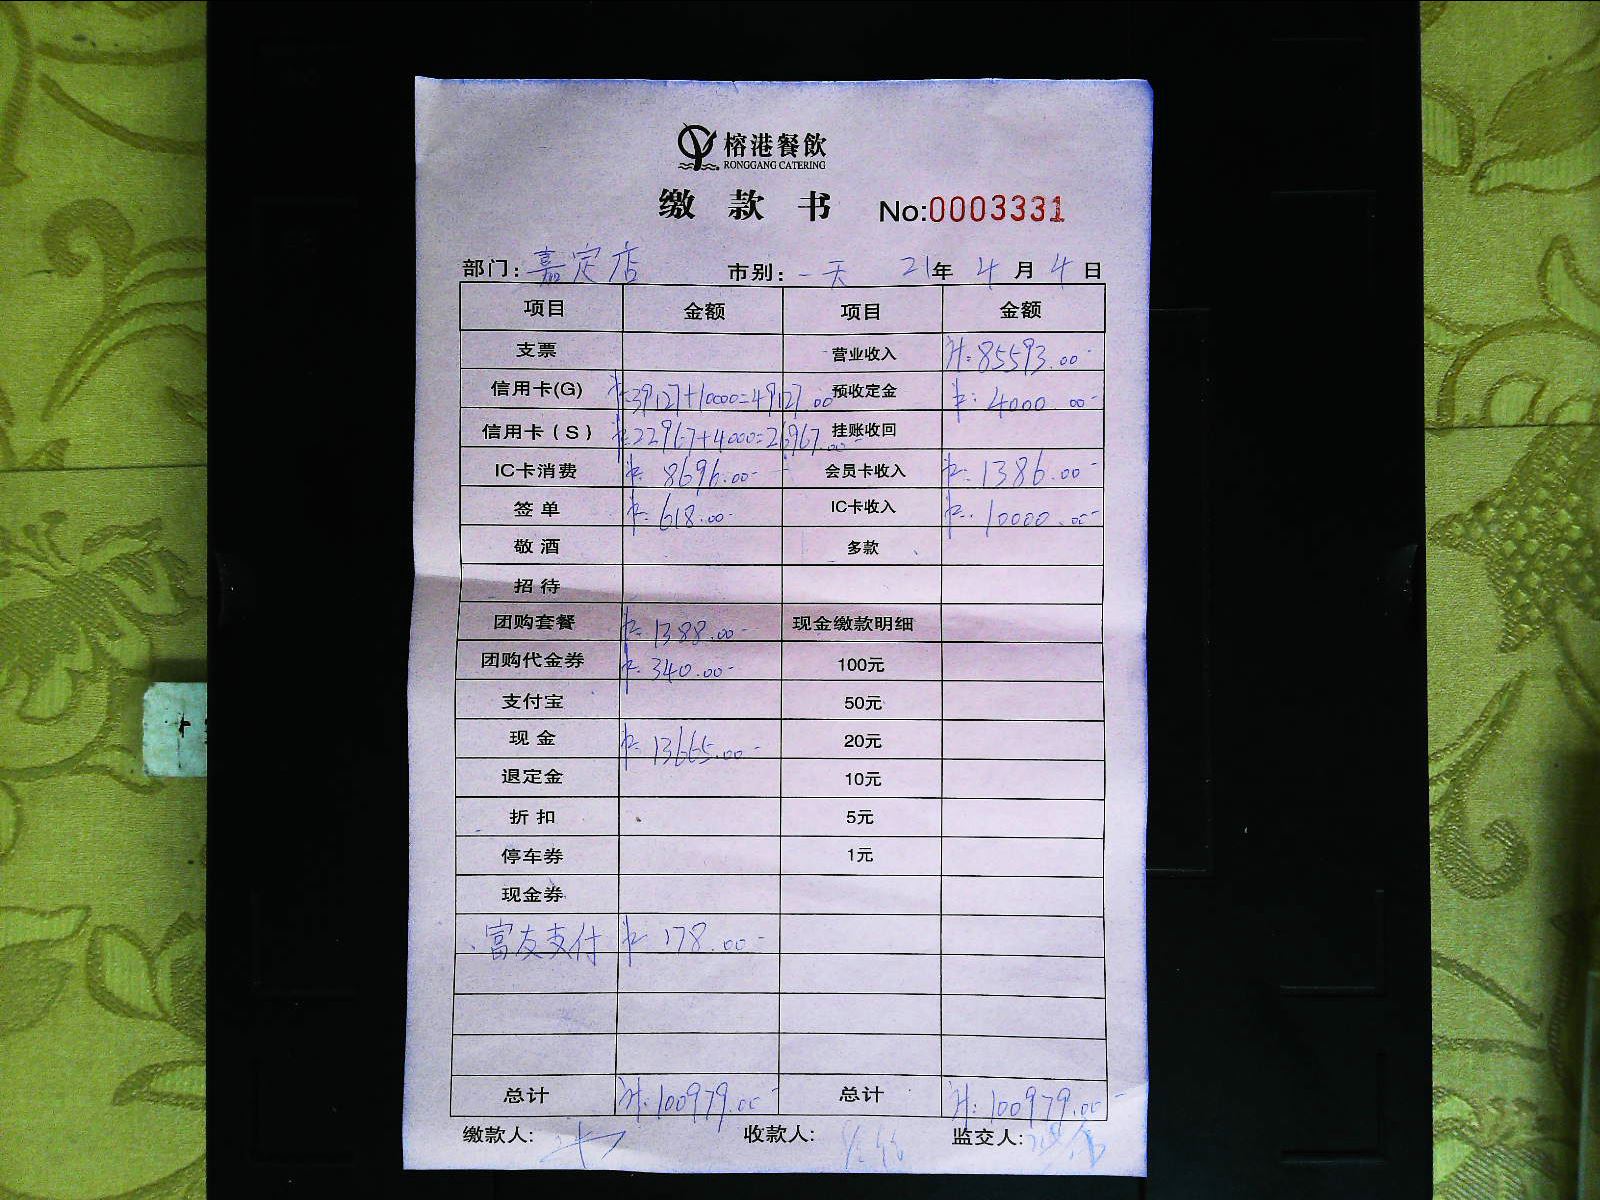 榕港餐飲
RONGGANG CATERING
缴款书 No:0003331
部门: 嘉定店 市别: 一天 21年 4月 4日
项目 金额 项目 金额
支票 营业收入 计: 85593.00-
信用卡(G) 卡: 39127+10000=49127.00 预收定金 卡: 4000.00-
信用卡(S) 卡: 22967+4000=26967.00- 挂账收回
IC卡消费 卡: 8696.00- 会员卡收入 卡: 1386.00-
签单 卡: 618.00- IC卡收入 卡: 10000.00-
敬酒 多款
招待
团购套餐 卡: 1388.00- 现金缴款明细
团购代金券 卡: 340.00- 100元
支付宝 50元
现金 卡: 13665.00- 20元
退定金 10元
折扣 5元
停车券 1元
现金券
富友支付 卡 178.00-
总计 计: 100979.00- 总计 计: 100979.00-
缴款人: 收款人: 监交人: